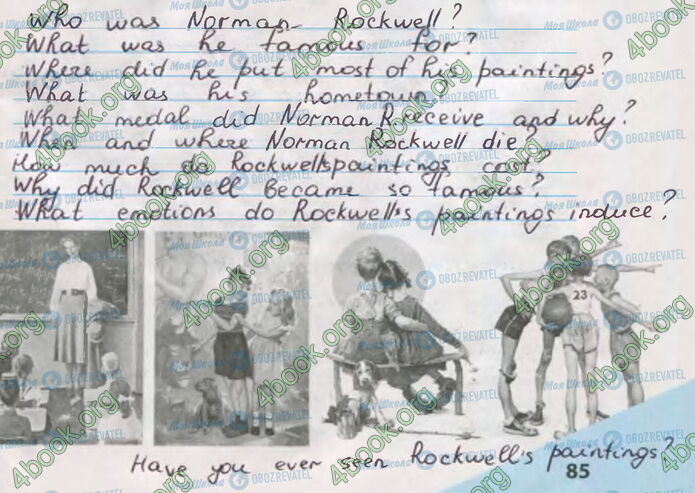 Who was Norman Rockwell?
What was he famous for?
Where did he put most of his paintings?
What was his hometown
What medal did Norman R. receive and why?
When and where Norman Rockwell die
How much do Rockwell's paintings cost?
Why did Rockwell became so famous?
What emotions do Rockwell's paintings induce?
23
Have you ever seen Rockwell's paintings?
85
4book.org
Моя Школа
OBOZREVATEL